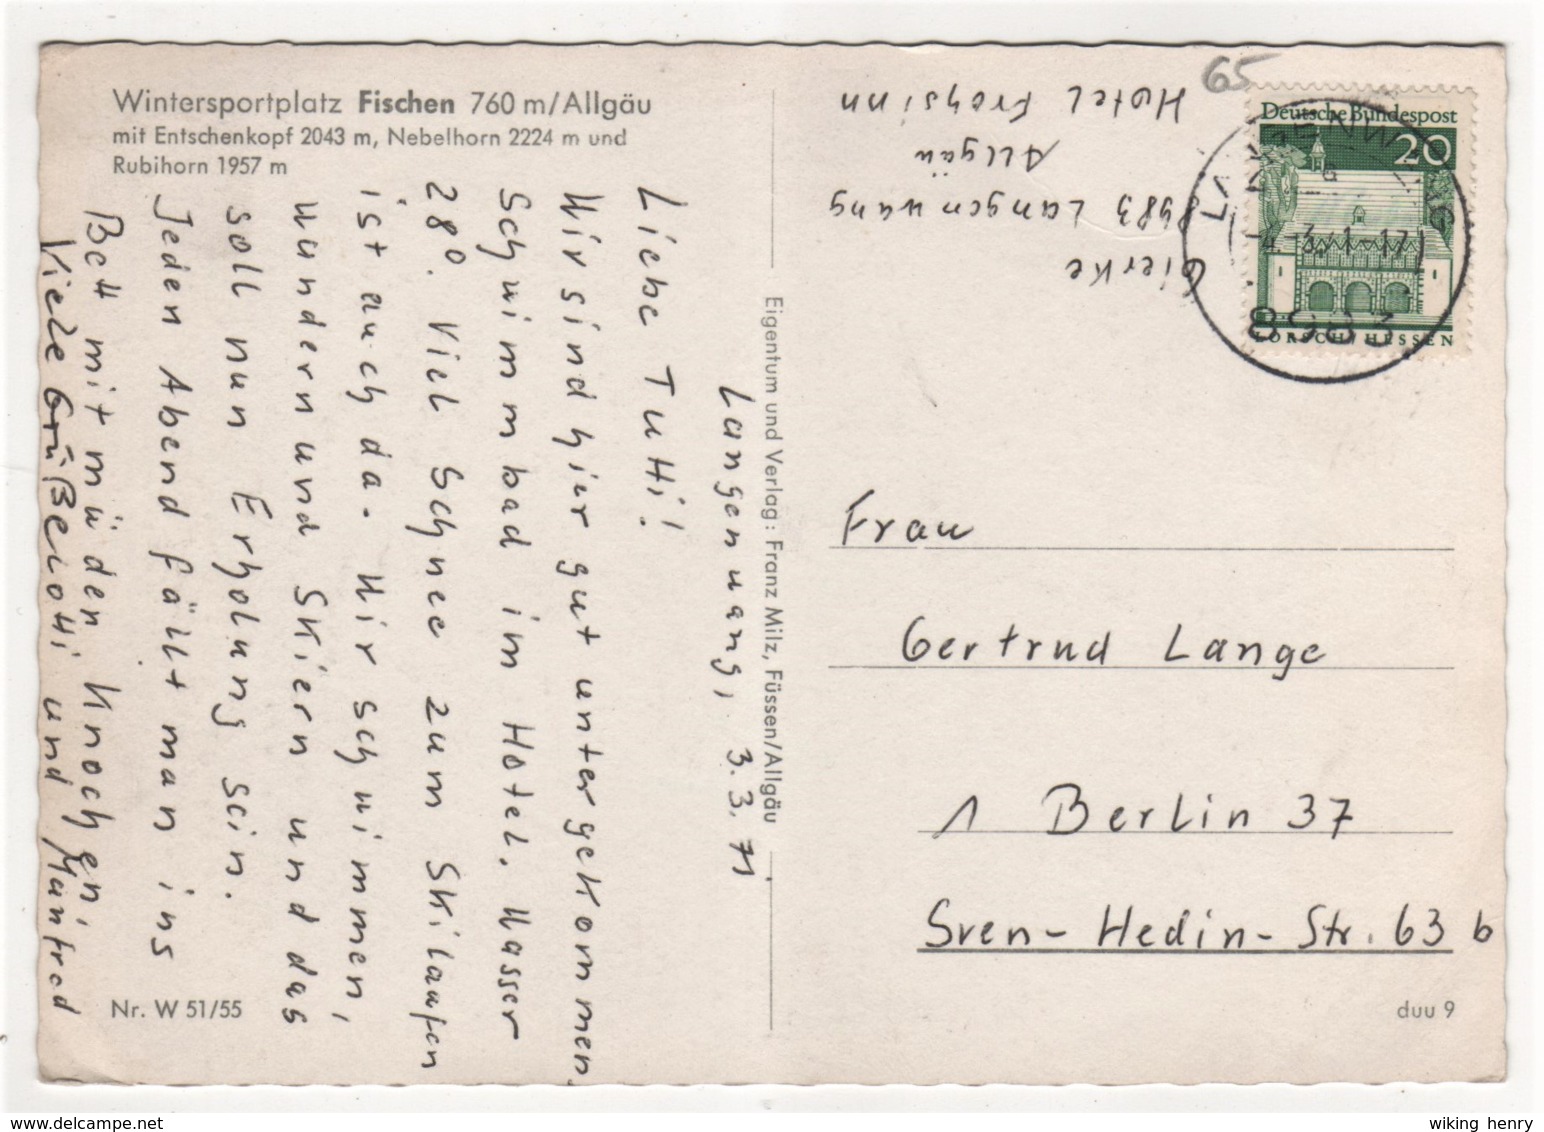 Wintersportplatz Fischen 760 m/Allgäu
mit Entschenkopf 2043 m, Nebelhorn 2224 m und
Rubihorn 1957 m
Langenwang, 3.3.71.
Liebe Tutti!
Wir sind hier gut untergekommen.
Schwimmbad im Hotel. Wasser
28°. Viel Schnee zum Skilaufen
ist auch da. Wir schwimmen,
wandern und Skiern und das
soll nun Erholung sein.
Jeden Abend fällt man ins
Bett mit müden Knochen.
Viele Grüße Lotti und Manfred
Nr. W 51/55
Eigentum und Verlag: Franz Milz, Füssen/Allgäu
Gierke
8983 Langenwang
Allgäu
Hotel Frohsinn
65
Deutsche Bundespost
20
LORSCH/HESSEN
LANGENWANG
-4.-3.71-17
8983
Frau
Gertrud Lange
1 Berlin 37
Sven-Hedin-Str. 63 b
duu 9
wiking henry